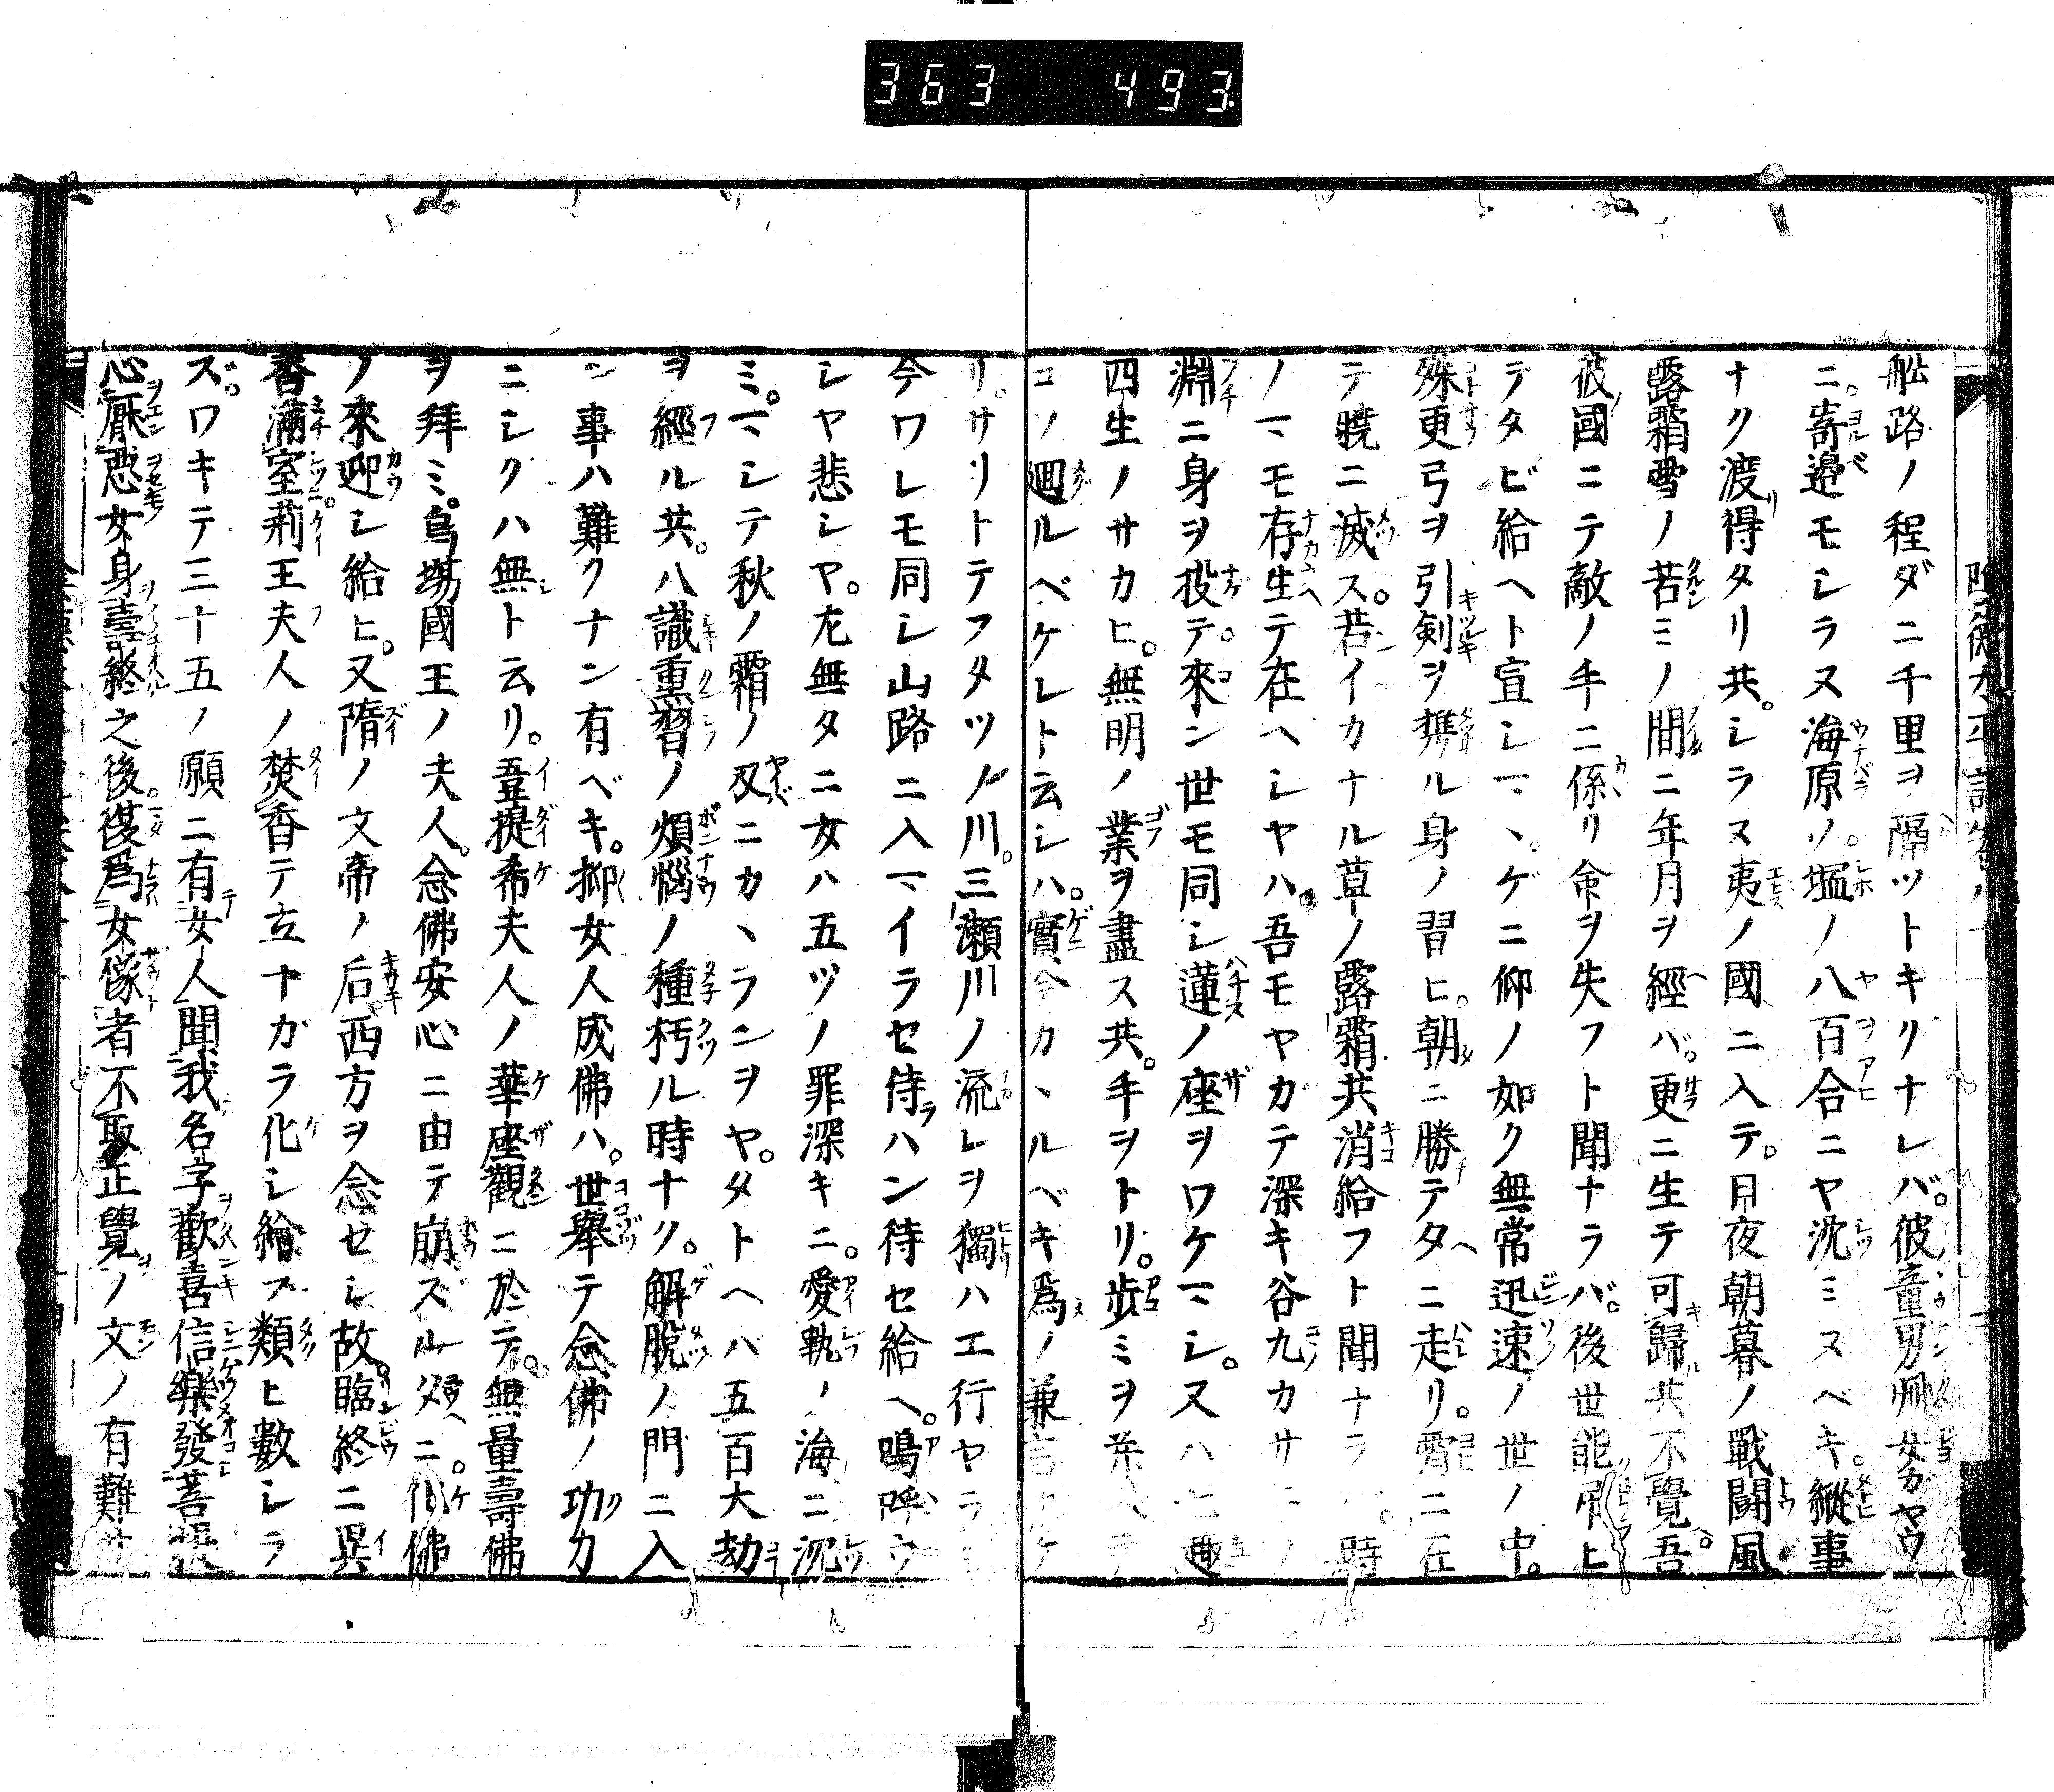 363 493
舩路ノ程ダニ千里ヲ隔ツトキリナレバ。彼童男丱女ガヤウ
ニ。寄邉モシラヌ海原ノ。塩ノ八百合ニヤ沈ミヌベキ。縱事
ナク渡得タリ共。シラヌ夷ノ國ニ入テ。日夜朝暮ノ戰闘風
露霜雪ノ苦ミノ間ニ年月ヲ經バ。更ニ生テ可歸共不覺。吾
彼國ニテ敵ノ手ニ係リ命ヲ失フト聞ナラバ。後世能吊ヒ
テタビ給ヘト宣シマヽ。ゲニ仰ノ如ク無常迅速ノ世ノ中。
殊更弓ヲ引剣ヲ携ル身ノ習ヒ。朝ニ勝テタニ走リ。霄ニ在
テ曉ニ滅ス。若イカナル草ノ露霜共消給フト聞ナラ 時
ノマモ存生テ在ヘシヤハ。吾モヤガテ深キ谷九カサ
淵ニ身ヲ投テ。來ン世モ同シ蓮ノ座ヲワケマシ。又ハ 趣
四生ノサカヒ。無明ノ業ヲ盡ス共。手ヲトリ。歩ミヲ
コソ廻ルベケレト云シハ。實今カヽルベキ爲ノ兼言
リ。サリトテフタツノ川。三瀬川ノ流レヲ獨ハエ行ヤラ
今ワレモ同シ山路ニ入マイラセ侍ハン待セ給ヘ。鳴呼ウ
シヤ悲シヤ。左無タニ女ハ五ツノ罪深キニ。愛執ノ海ニ沉
ミ。マシテ秋ノ霜ノ刄ニカヽランヲヤ。タトヘバ五百大劫
ヲ經ル共。八識熏習ノ煩惱ノ種朽ル時ナク。解脱ノ門ニ入
ン事ハ難クナン有ベキ。抑女人成佛ハ。世舉テ念佛ノ功力
ニシクハ無ト云リ。韋提希夫人ノ華座觀ニ於テ。無量壽佛
ヲ拜ミ。烏塲國王ノ夫人。念佛安心ニ由テ崩ズル夕ニ。化佛
ノ來迎シ給ヒ。又隋ノ文帝ノ后。西方ヲ念セシ故。臨終ニ異
香滿室。荊王夫人ノ焚香テ立ナガラ化シ給フ類ヒ數シラ
ズ。ワキテ三十五ノ願ニ有女人聞我名字歡喜信樂發菩提
心厭惡女身壽終之後復爲女像者不取正覺ノ文ノ有難サ